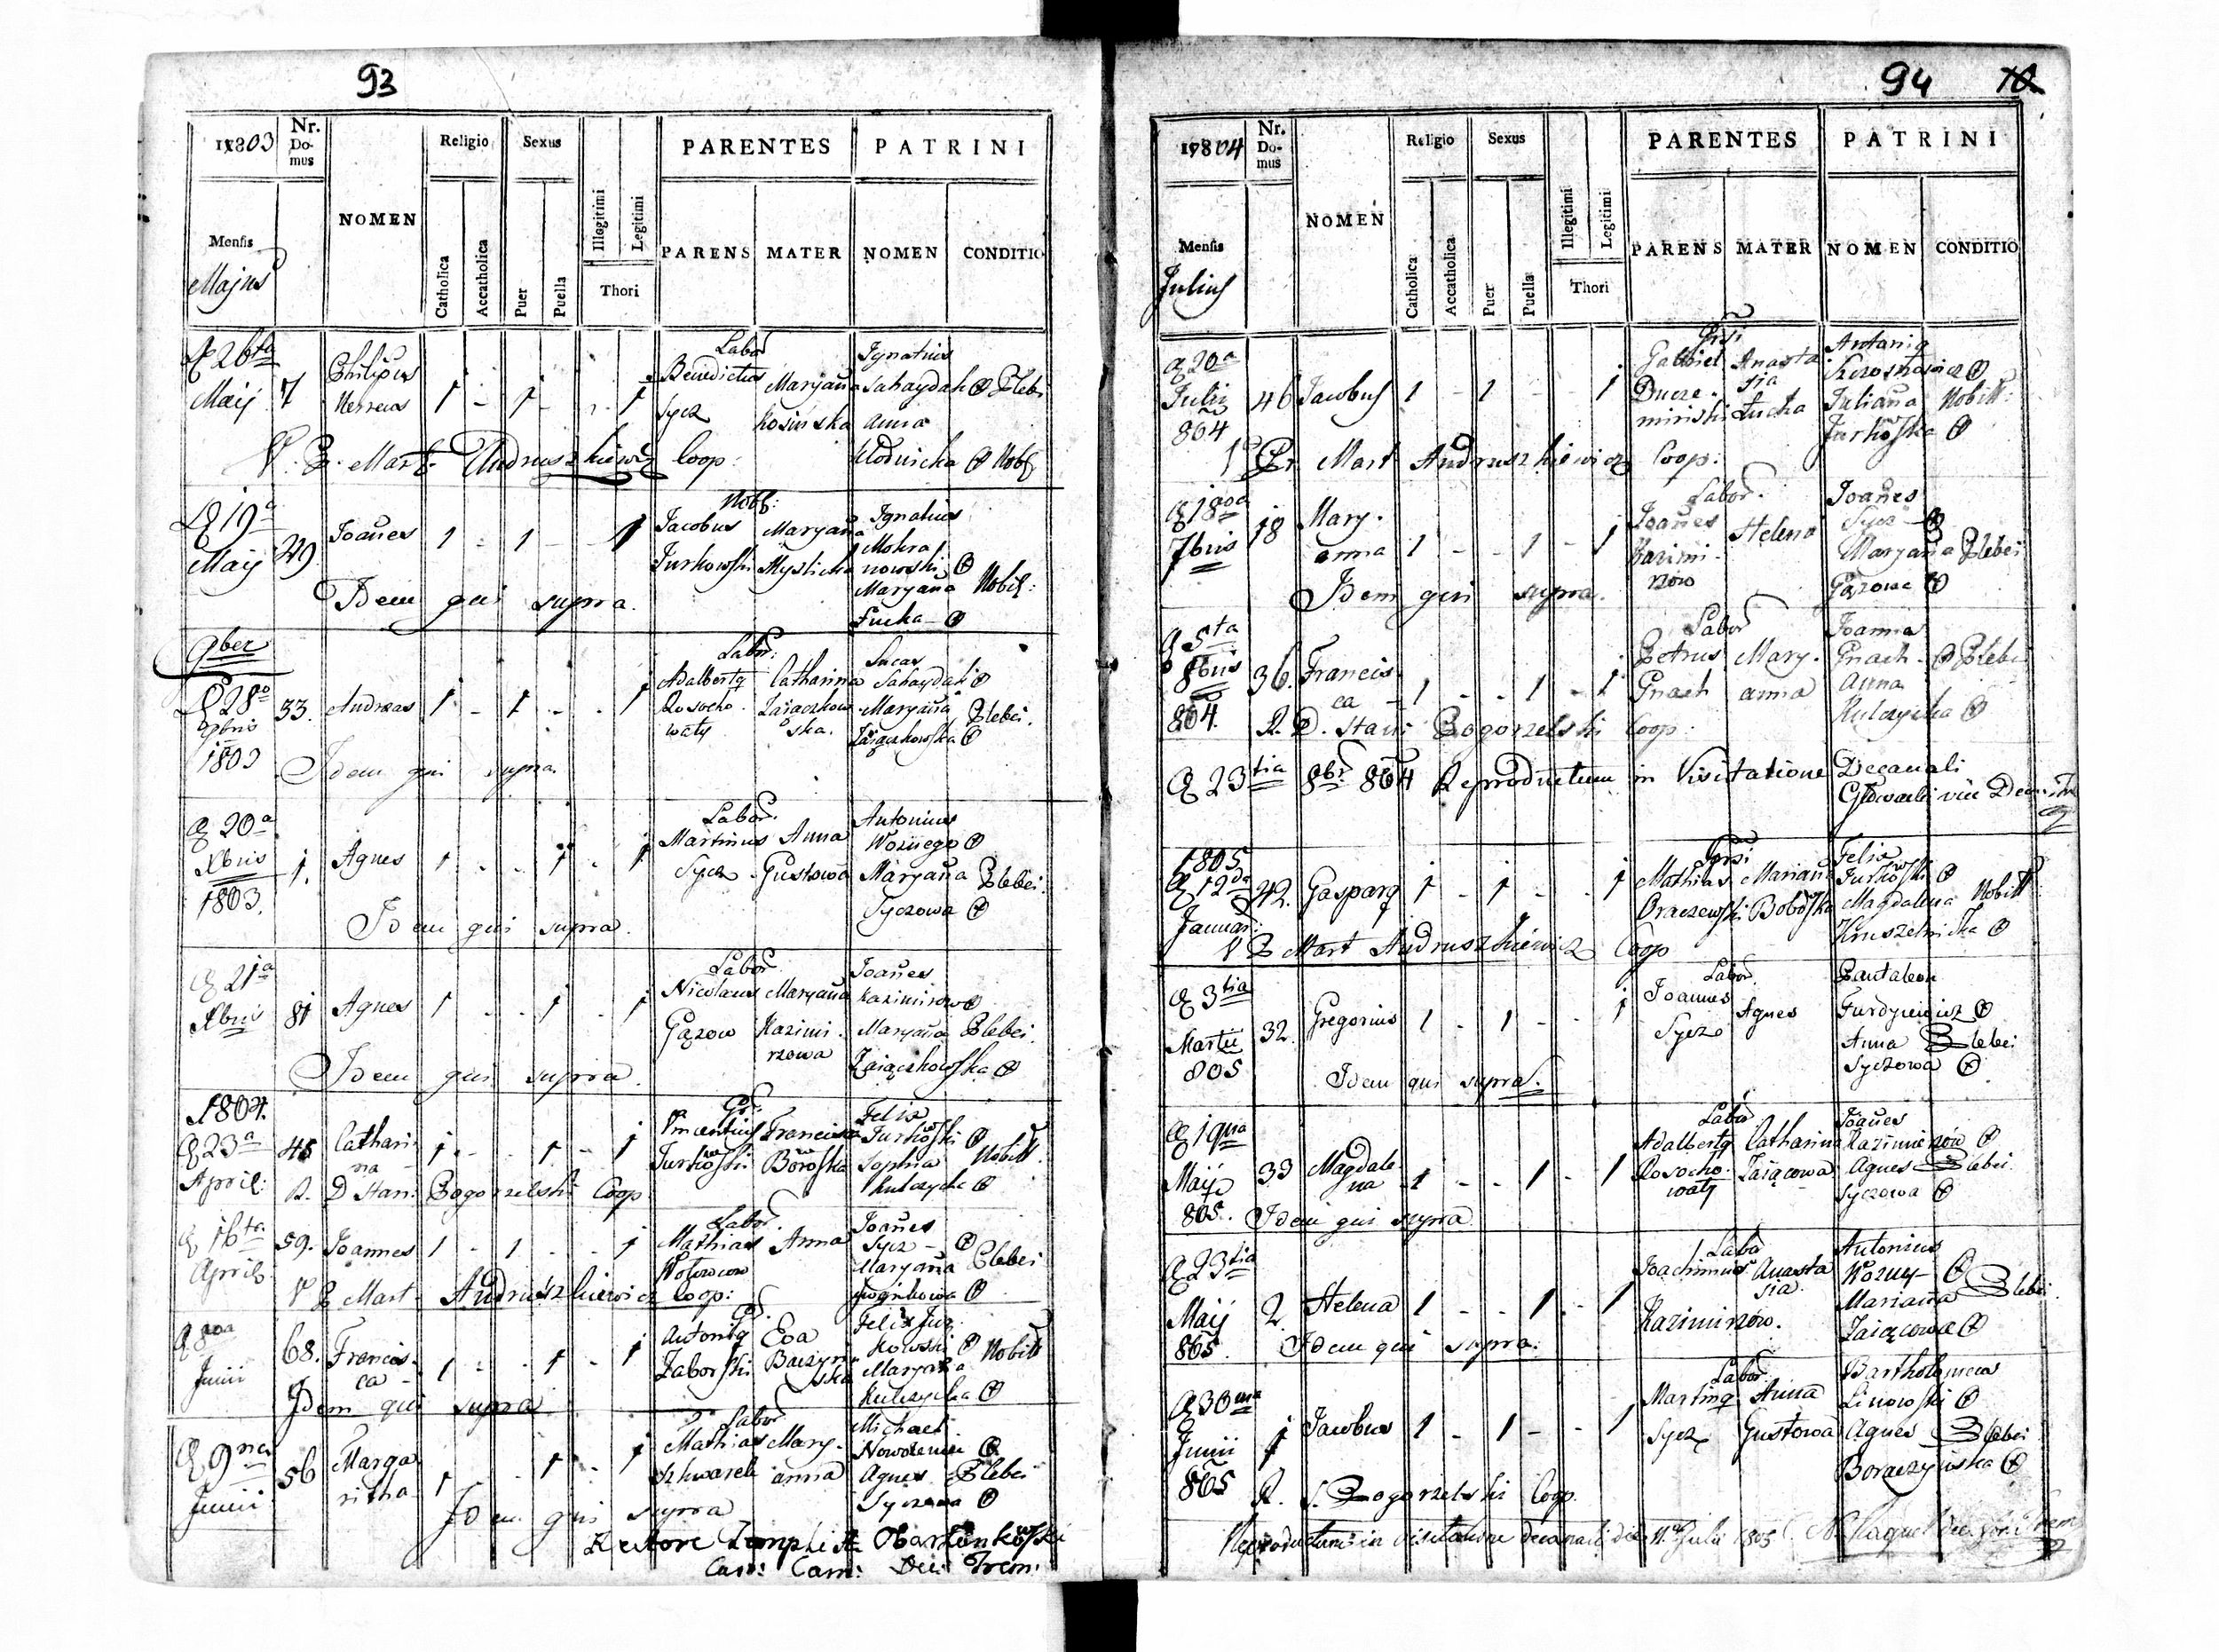 93
1803
Nr. Do- mus
NOMEN
Religio
Sexus
Illegitimi
Legitimi
Thori
PARENTES
PATRINI
Mensis
Majus
Catholica
Accatholica
Puer
Puella
PARENS
MATER
NOMEN
CONDITIO
26ta
Maij 7 Philipus Nereus 1 - 1 - - 1
Labor
Benedictus Sycz
Maryana Kosinska
Ignatius Sahaydak Plebei
Anna Klodnicka Nobil
V. P. Mart. Andruszkiewicz Coop:
19a
Maij 49 Joanes 1 - 1 - - 1
Nobil:
Jacobus Turkowski
Maryana Myslicka
Ignatius Mokranowski
Maryana Lucka
Nobil:
Idem qui supra.
9ber
28a
9bris
1803
33. Andreas 1 - 1 - - 1
Labor:
Adalbertq Rosochowaty
Catharina Zaiączkowska.
Lucas Sahaydak
Maryana Zaiączkowska
Plebei.
Idem qui supra.
20a
Xbris
1803.
1. Agnes 1 - - 1 - 1
Labor.
Martinus Sycz
Anna Gustowa
Antonius Woznego
Maryana Syczowa
Plebei.
Idem qui supra.
21a
Xbris 81 Agnes 1 - - 1 - 1
Labor
Nicolaus Gązow
Maryana Kazimirzowa
Joanes Kazimirow
Maryana Zaiączkowska
Plebei.
Idem qui supra.
1804.
23a
April: 45 Catharina 1 - - 1 - 1
Vincentius Turkowski
Francisca Borowska
Felix Turkowski
Sophia Kulczycka
Nobill
R. D Stan: Pogorzelski Coop
16ta
Aprilis 59. Joannes 1 - 1 - - 1
Labor.
Mathias
Anna
Joanes Sycz
Maryana
Plebei
V P Mart. Andruszkiewicz Coop:
8va
Junii 68. Francisca 1 - - 1 - 1
Antoniq Zaborski
Eva Baczynska
Felix Turkowski
Maryana Kulczycka
Nobill
Idem qui supra
9na
Junii 56 Margaritha 1 - - 1 - 1
Labor
Mathias
Maryanna
Michael
Agnes Syczowa
Plebei
Idem qui supra
94
1804
Nr. Do- mus
NOMEN
Religio
Sexus
Illegitimi
Legitimi
Thori
PARENTES
PATRINI
Mensis
Julius
Catholica
Accatholica
Puer
Puella
PARENS
MATER
NOMEN
CONDITIO
20a
Julii
804
46 Jacobus 1 - 1 - - 1
Gabriel
Anastasia Lucka
Juliana Turkowska
Nobill:
V. Pr Mart Andruszkiewicz Coop:
18va
7bris 18 Maryanna 1 - - 1 - 1
Labor.
Joanes Kazimirzow
Helena
Joanes Sycz
Maryana Gązowa
Plebei
Idem qui supra.
5ta
8bris
804.
36. Francisca 1 - - 1 - 1
Labor
Petrus Gnach
Maryanna
Joanna Gnach
Anna Kulczycka
Plebei
R. D. Stani Pogorzelski Coop
23tia 8br 804 Reproductum in Visitatione Decanali
1805
12da
Januar:
42. Gasparq 1 - 1 - - 1
Mathias Oraczewski
Mariana Bobowska
Felix Turkowski
Magdalena Kruszelnicka
Nobill:
V P Mart Andruszkiewicz Coop
3tia
Martii
805
32. Gregorius 1 - 1 - - 1
Labor.
Joannes Sycz
Agnes
Pantaleon
Anna Syczowa
Plebei
Idem qui supra.
Maij
805.
33 Magdalena 1 - - 1 - 1
Labor
Adalbertq Rosochowaty
Catharina Zaiącowa
Joanes Kazimirzow
Agnes Syczowa
Plebei.
Idem qui supra
23tia
Maij
805.
2 Helena 1 - - 1 - 1
Labor
Joachimus Kazimirzow.
Anastasia.
Antonius Wozny
Mariana Zaiącowa
Plebei.
Idem qui supra.
30ma
Junii
805
1 Jacobus 1 - 1 - - 1
Labor.
Martinq Sycz
Anna Gustowa
Bartholomeus Linowski
Agnes Boraczynska
Plebei
R. S. Pogorzelski Coop.
Reproductum in visitatione decanali die 11 Julii 1805